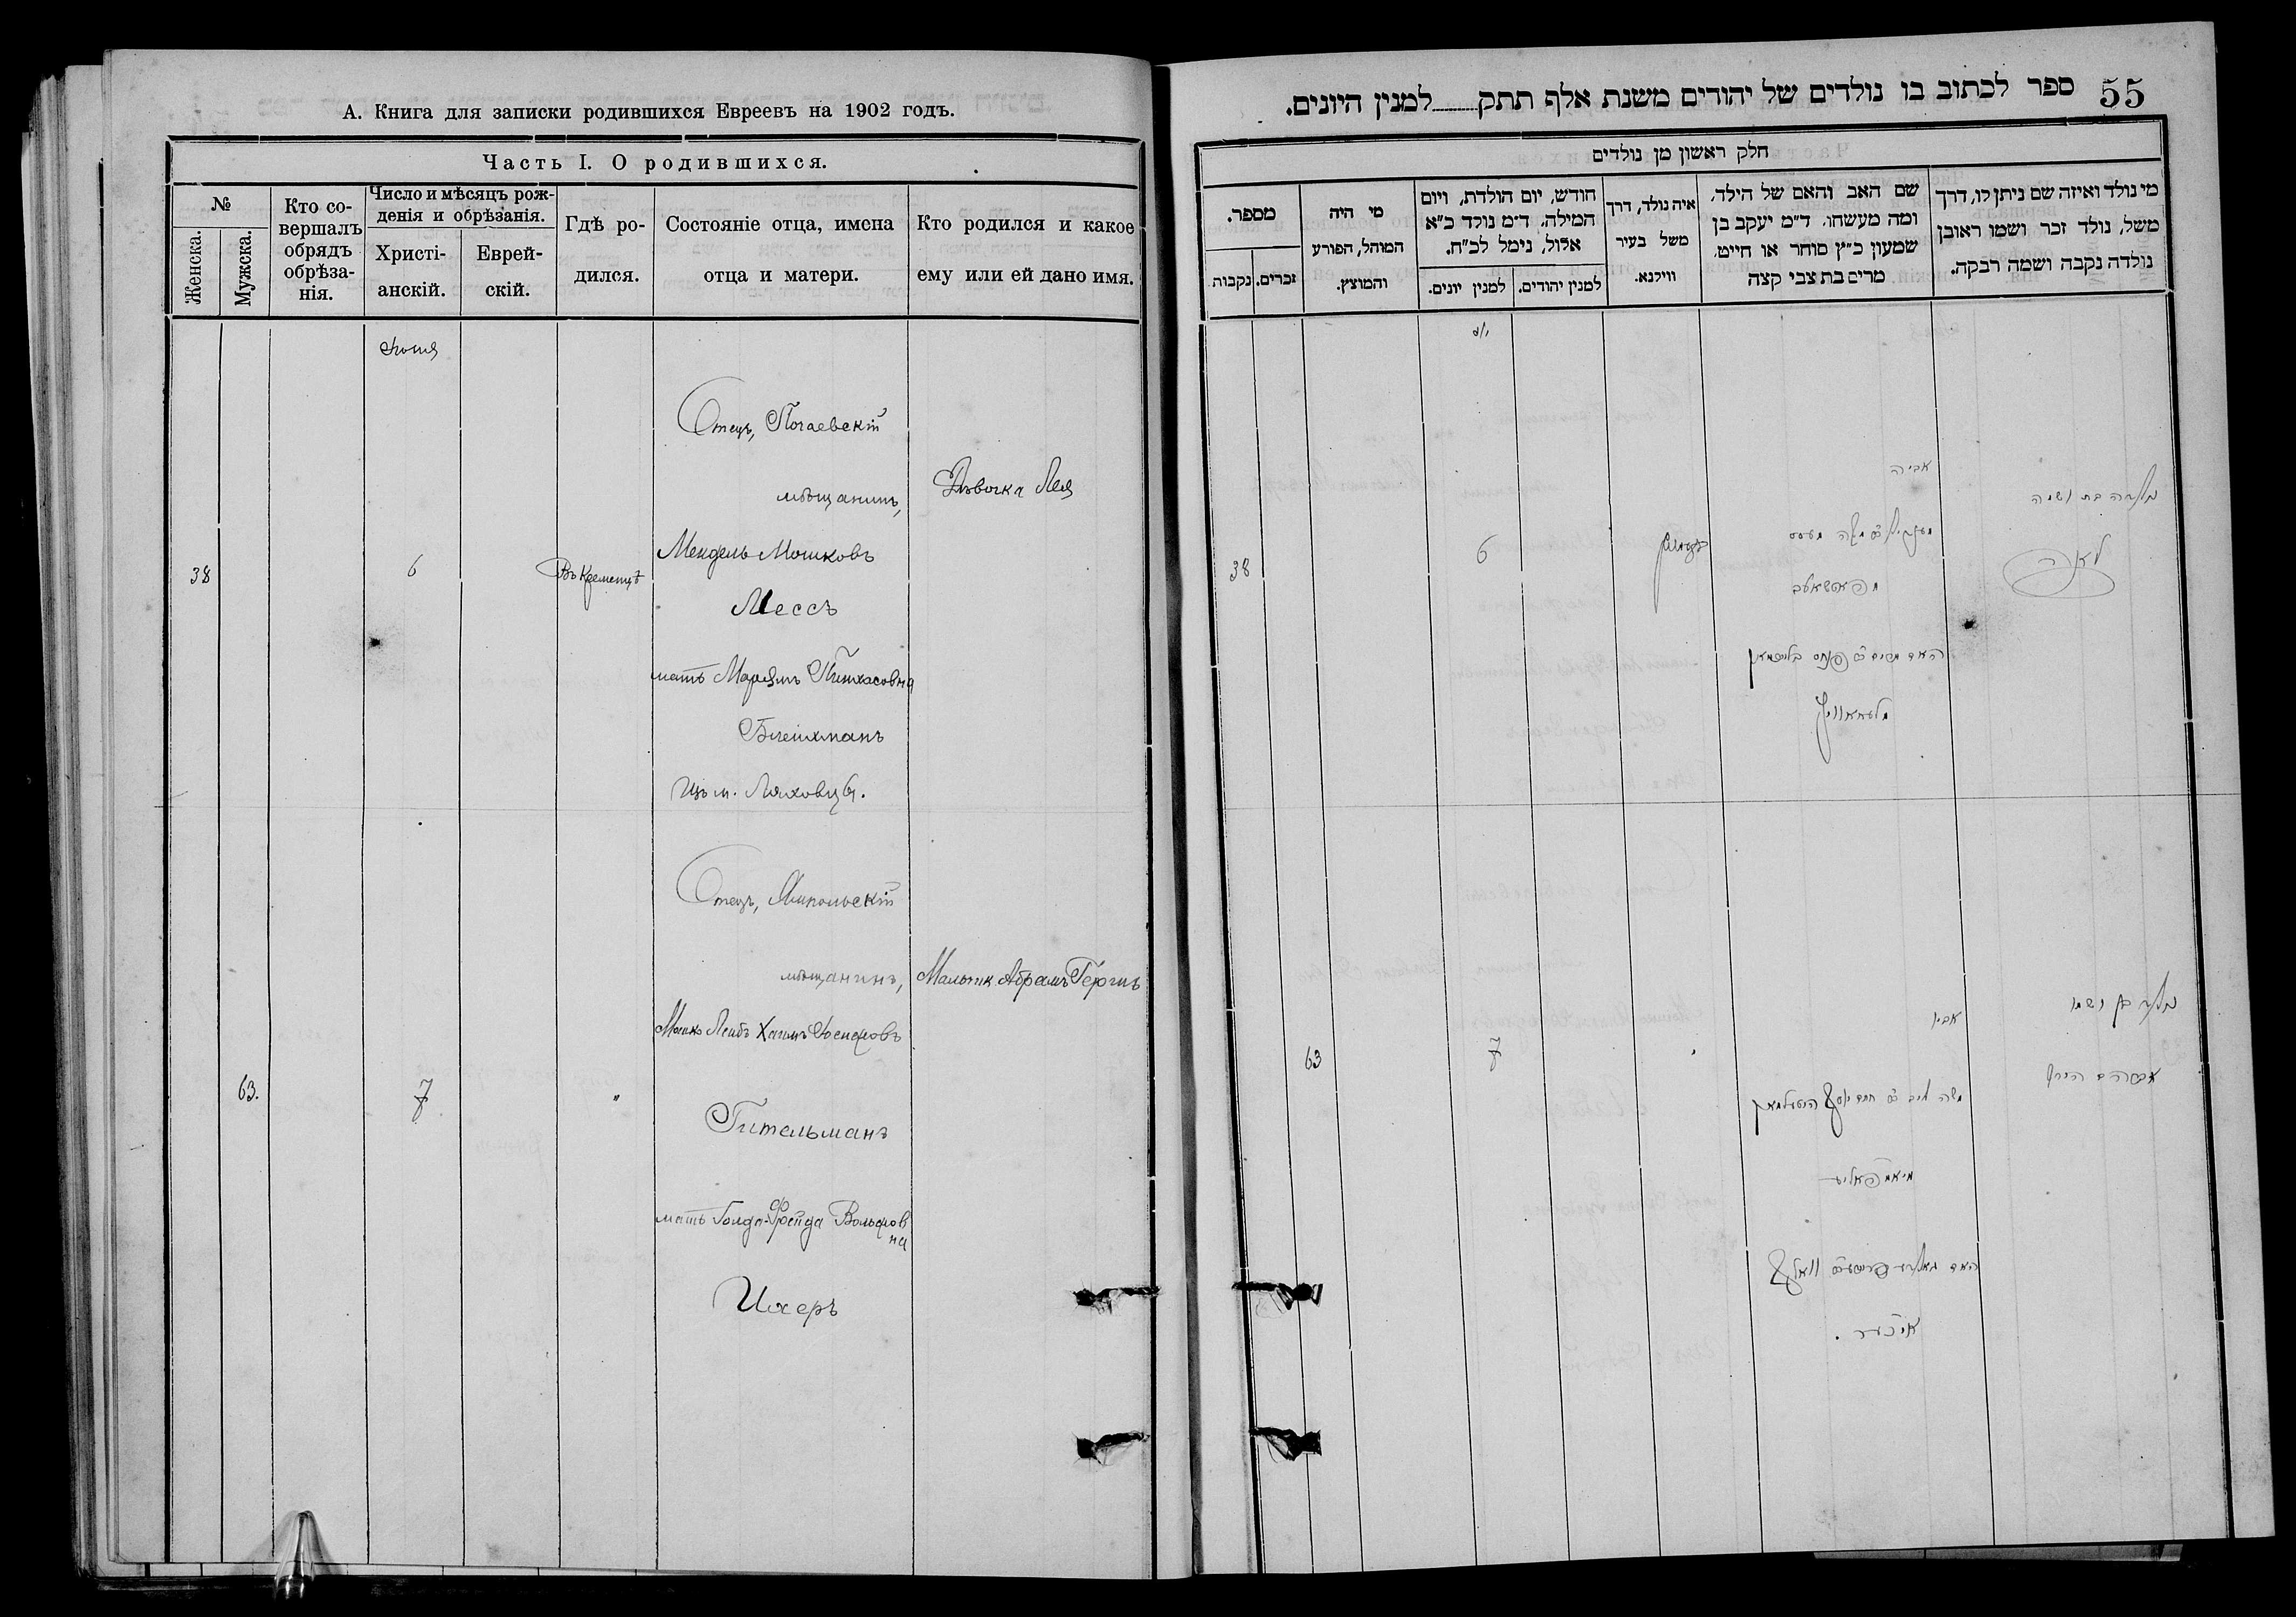 А. Книга для записки родившихся Евреевъ на 1902 годъ.
Часть I. О родившихся.
№
Женска.
Мужска.
Кто со-
вершалъ
обрядъ
обрѣза-
нія.
Число и мѣсяцъ рож-
денія и обрѣзанія.
Христі-
анскій.
Еврей-
скій.
Гдѣ ро-
дился.
Состояніе отца, имена
отца и матери.
Кто родился и какое
ему или ей дано имя.
Отецъ, Почаевскій
мѣщанинъ,
Дѣвочка Лея
Мендель Мошковъ
38
6
Въ Кременцѣ
Мессъ
мать Маріямъ Пинхасовна
Блейхманъ
изъ м. Ляховцы.
Отецъ, Ямпольскій
мѣщанинъ,
Мальчик Абрамъ Гершъ
Мошко Лейбъ Хаимъ Іосифовъ
63.
7
"
Гительманъ
мать Голда-Фрейда Вольфов
на
Ихеръ
55
ספר לכתוב בו נולדים של יהודים משנת אלף תתק למנין היונים.
חלק ראשון מן נולדים
מי נולד ואיזה שם ניתן לו, דרך
משל, נולד זכר ושמו ראובן
נולדה נקבה ושמה רבקה.
שם האב והאם של הילד,
ומה מעשהו. ד״מ יעקב בן
שמעון כ״ץ סוחר או חייט.
מרים בת צבי קצה
איה נולד, דרך
משל בעיר
ווילנא.
חודש, יום הולדת, ויום
המילה, ד״מ נולד כ״א
אלול, נימל לכ״ח.
למנין יהודים.
למנין יונים.
מי היה
המוהל, הפורע
והמוצץ.
מספר.
זכרים.
נקבות
אביה
נולדה בת ושמה
לאה
6
38
מפאטשאיעוו
נולד בן ושמו
אביו
אברהם הירש
7
63
משה ליב ב״ר חיים יוסף היטעלמאן
מיאמפאליע
איכער.